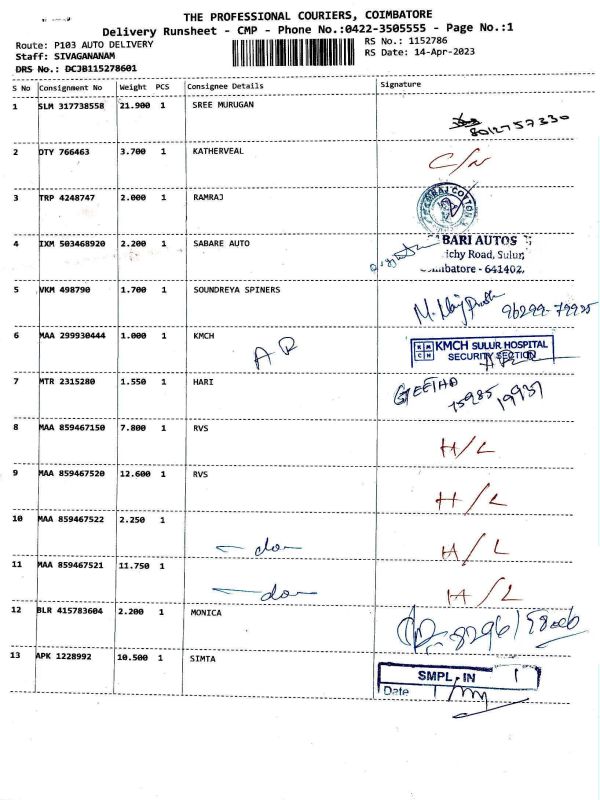 THE PROFESSIONAL COURIERS, COIMBATORE
Delivery Runsheet - CMP - Phone No.:0422-3505555 - Page No.:1
Route: P103 AUTO DELIVERY
RS No.: 1152786
Staff: SIVAGANANAM
RS Date: 14-Apr-2023
DRS No.: DCJB115278601
S No Consignment No Weight PCS Consignee Details Signature
1 SLM 317738558 21.900 1 SREE MURUGAN
8012757330
2 DTY 766463 3.700 1 KATHERVEAL C/N
3 TRP 4248747 2.000 1 RAMRAJ
4 IXM 503468920 2.200 1 SABARE AUTO
BARI AUTOS
ichy Road, Sulur,
mbatore - 641402.
5 VKM 498790 1.700 1 SOUNDREYA SPINERS
96299-79925
6 MAA 299930444 1.000 1 KMCH
A R
KMCH SULUR HOSPITAL
SECURITY SECTION
7 MTR 2315280 1.550 1 HARI
GEETHA
15985 19937
8 MAA 859467150 7.800 1 RVS H/L
9 MAA 859467520 12.600 1 RVS H/L
10 MAA 859467522 2.250 1 - do - H/L
11 MAA 859467521 11.750 1 - do - H/L
12 BLR 415783604 2.200 1 MONICA
13 APK 1228992 10.500 1 SIMTA
SMPL. IN 1
Date